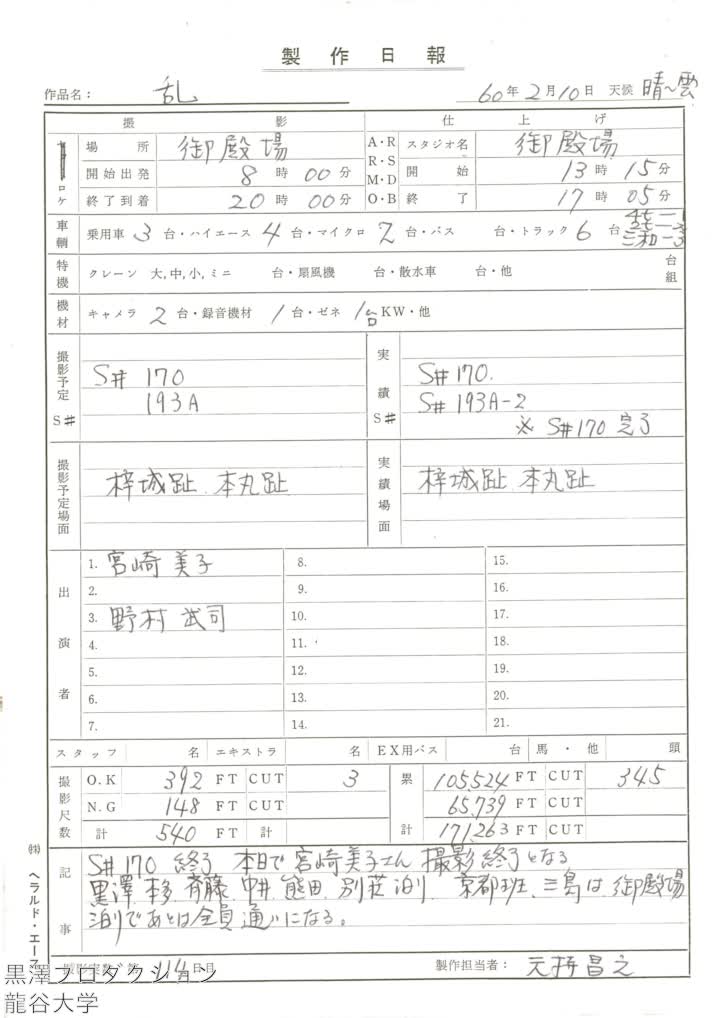 製作日報
作品名： 乱 60年2月10日 天候 晴〜雲
撮影 仕上げ
ロケ 場所 御殿場 A・R スタジオ名 御殿場
開始出発 8時00分 R・S M・D 開始 13時15分
終了到着 20時00分 O・B 終了 17時05分
車輌 乗用車 3 台・ハイエース 4 台・マイクロ 2 台・バス 台・トラック 6 台
特機 クレーン 大,中,小,ミニ 台・扇風機 台・散水車 台・他 台組
機材 キャメラ 2 台・録音機材 1 台・ゼネ 1台 KW・他
撮影予定 S# 実績 S#
S# 170 S# 170.
193A S# 193A-2
※ S#170 完了
撮影予定場面 梓城趾、本丸趾 実績場面 梓城趾 本丸趾
出演者
1. 宮崎美子 8. 15.
2. 9. 16.
3. 野村武司 10. 17.
4. 11. 18.
5. 12. 19.
6. 13. 20.
7. 14. 21.
スタッフ 名 エキストラ 名 EX用バス 台 馬・他 頭
撮影尺数 O.K 392 FT CUT 3 累計 105,524 FT CUT 345
N.G 148 FT CUT 65,739 FT CUT
計 540 FT 計 171,263 FT CUT
記事
S#170 終了 本日で宮崎美子さん 撮影終了となる
黒澤、本多、斉藤、中井、熊田、別荘泊り、京都班、三島は御殿場
泊りであとは全員通いになる。
114日目 製作担当者： 元持昌之
㈱ ヘラルド・エース
黒澤プロダクション
龍谷大学